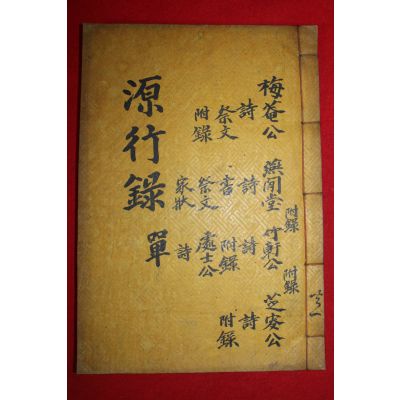 共一
梅菴公 堂 附錄 竹軒公 附錄 芝公
詩 詩 詩 詩
祭文 書 附錄 附錄
附錄 祭文 處士公
家狀 詩
源行錄 單